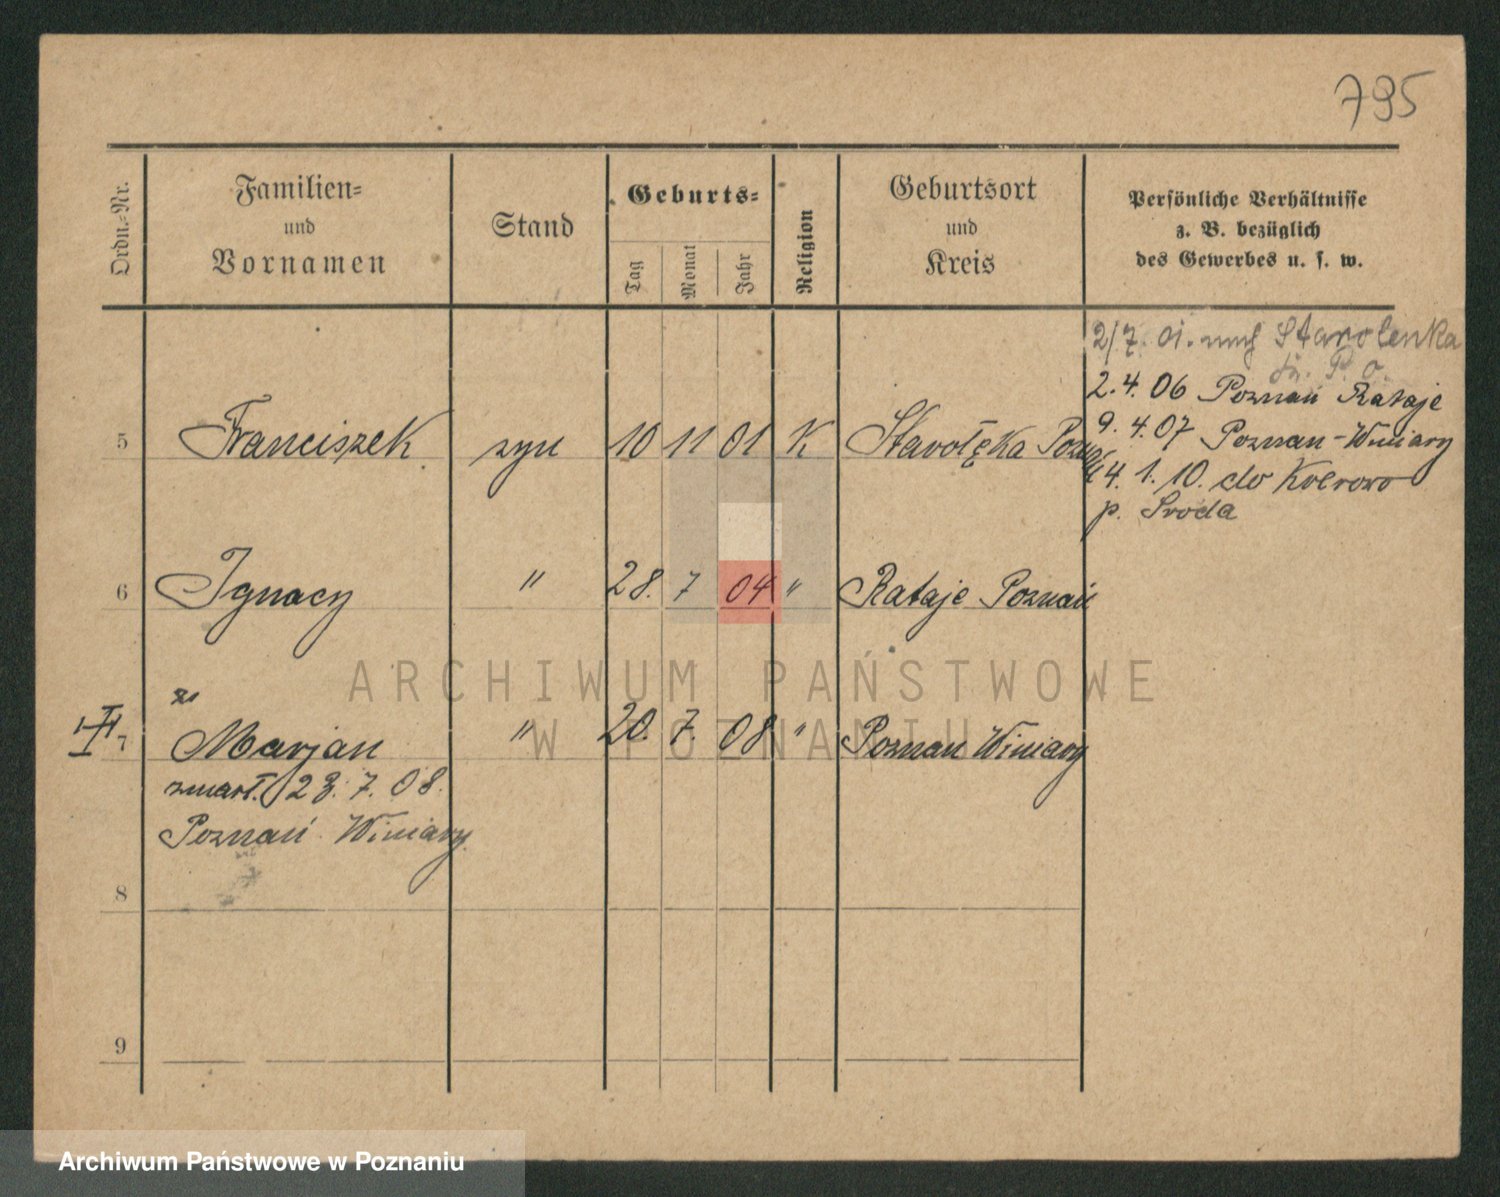 795
Ordn.-Nr.
Familien-
und
Vornamen
Stand
Geburts-
Tag
Monat
Jahr
Religion
Geburtsort
und
Kreis
Persönliche Verhältnisse
z. B. bezüglich
des Gewerbes u. s. w.
2/7. 01. nach Starolenka
Kr. P. O.
2. 4. 06 Poznań Rataje
9. 4. 07 Poznan-Winiary
5 Franciszek syn 10 11 01 K Starołęka Pozn
4. 1. 10. do
p. Sroda
6 Ignacy " 28. 7 04 " Rataje Poznań
ARCHIWUM PAŃSTWOWE
W POZNANIU
7 Marjan " 20. 7. 08 " Poznan Winiary
zmarł. 23. 7. 08.
Poznań Winiary
8
9
Archiwum Państwowe w Poznaniu